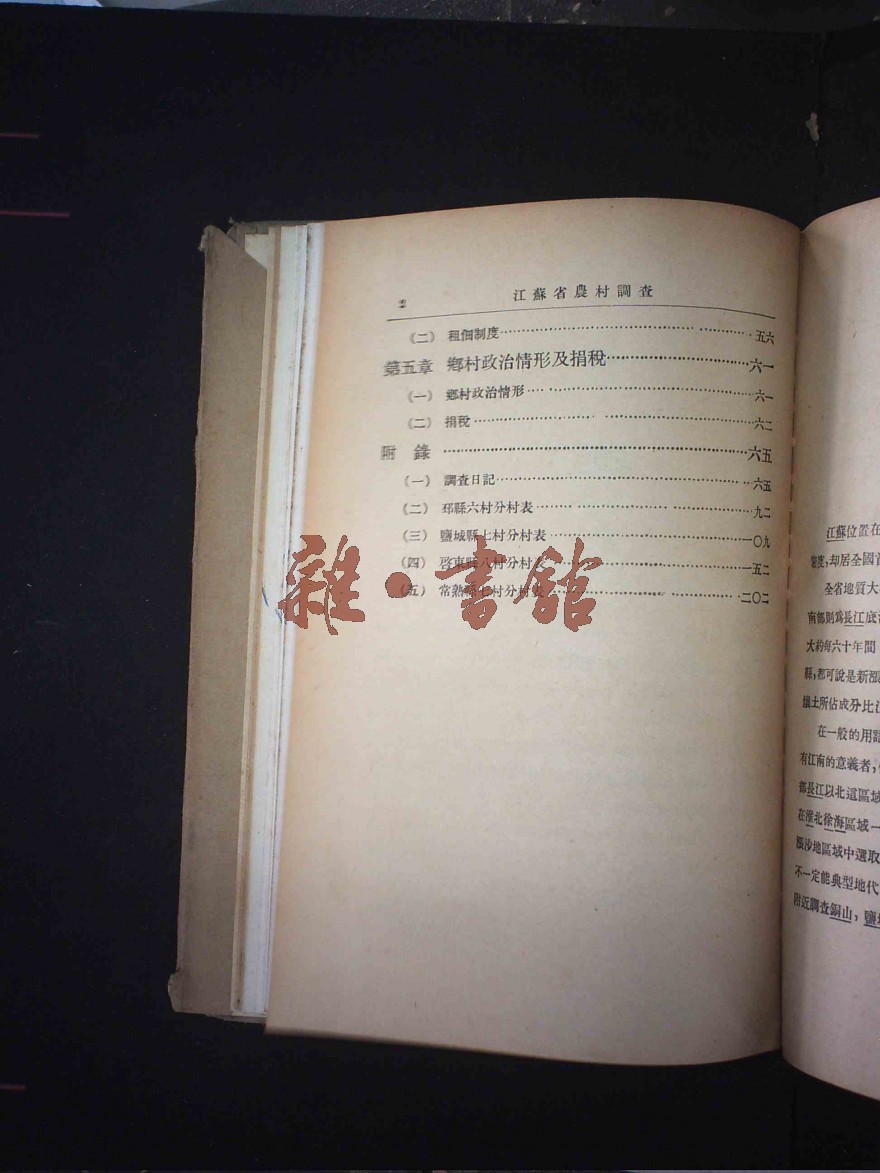 2 江蘇省農村調查
（二） 租佃制度 五六
第五章 鄉村政治情形及捐稅 六一
（一） 鄉村政治情形 六一
（二） 捐稅 六二
附 錄 六五
（一） 調查日記 六五
（二） 邳縣六村分村表 九二
（三） 鹽城縣七村分村表 一〇九
（四） 啓東縣八村分村表 一五二
（五） 常熟縣七村分村表 二〇二
雜·書館
江蘇位置在
密度，却居全國首
全省地質大
南部則爲長江底
大約每六十年間
縣，都可說是新漲
壤土所佔成分比
在一般的用語
有江南的意義者，
部長江以北這區域
在淮北徐海區域一
漲沙地區域中選取
不一定能典型地代
附近調查銅山，鹽